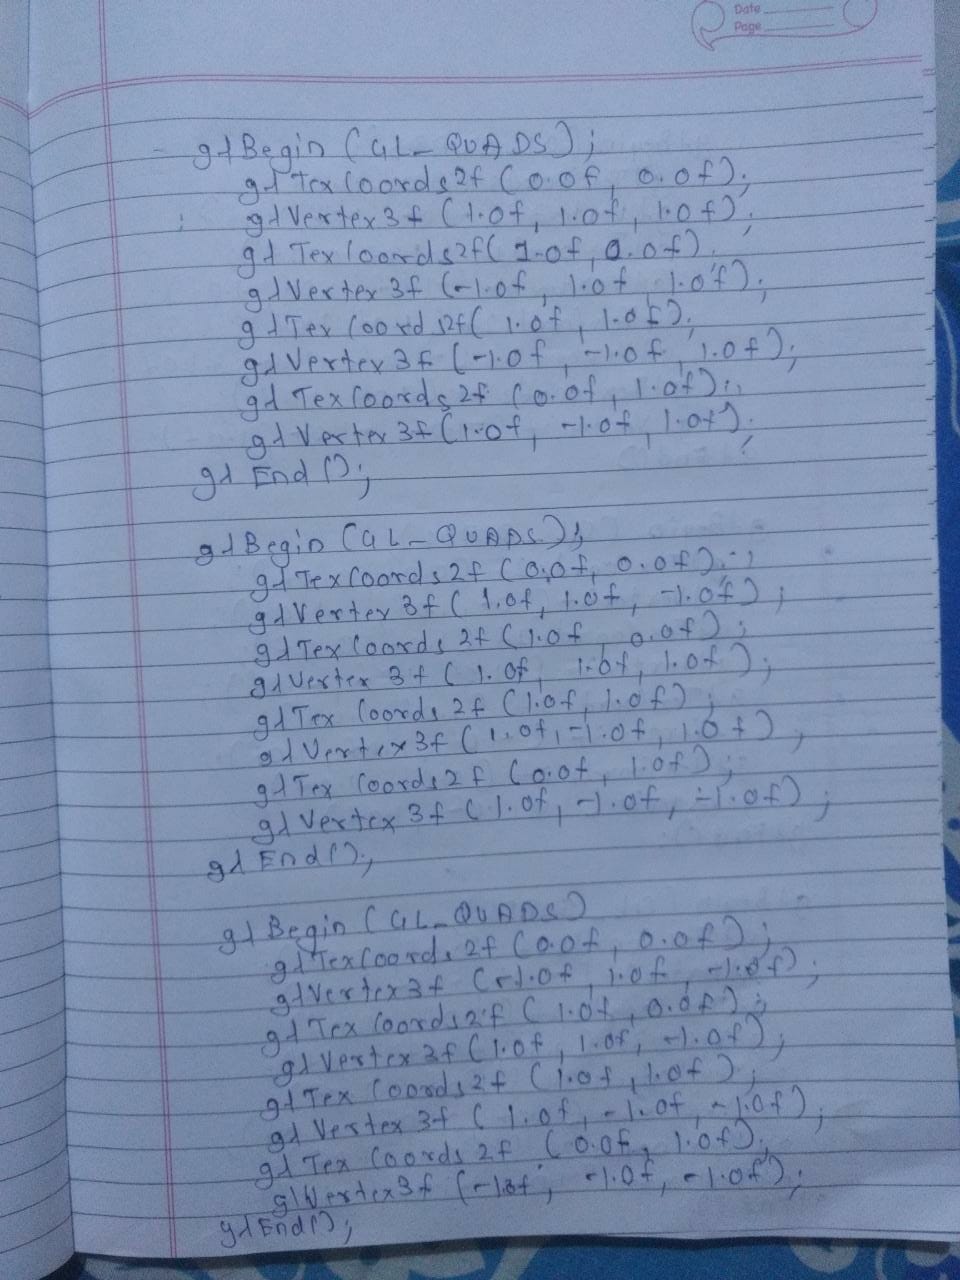 Date
Page
glBegin (GL_QUADS);
glTexCoords2f (0.0f, 0.0f);
glVertex3f (1.0f, 1.0f, 1.0f);
glTexCoords2f( 1.0f, 0.0f);
glVertex3f (-1.0f, 1.0f, 1.0f);
glTexCoords2f( 1.0f, 1.0f);
glVertex3f (-1.0f, -1.0f, 1.0f);
glTexCoords2f (0.0f, 1.0f);
glVertex3f (1.0f, -1.0f, 1.0f);
glEnd();
glBegin (GL_QUADS);
glTexCoords2f (0.0f, 0.0f);
glVertex3f ( 1.0f, 1.0f, -1.0f);
glTexCoords2f (1.0f, 0.0f);
glVertex3f ( 1.0f, 1.0f, 1.0f);
glTexCoords2f (1.0f, 1.0f);
glVertex3f ( 1.0f, -1.0f, 1.0f);
glTexCoords2f (0.0f, 1.0f);
glVertex3f ( 1.0f, -1.0f, -1.0f);
glEnd();
glBegin (GL_QUADS)
glTexCoords2f (0.0f, 0.0f);
glVertex3f (-1.0f, 1.0f, -1.0f);
glTexCoords2f ( 1.0f, 0.0f);
glVertex3f (1.0f, 1.0f, -1.0f);
glTexCoords2f ( 1.0f, 1.0f);
glVertex3f ( 1.0f, -1.0f, -1.0f);
glTexCoords2f (0.0f, 1.0f);
glVertex3f (-1.0f, -1.0f, -1.0f);
glEnd();